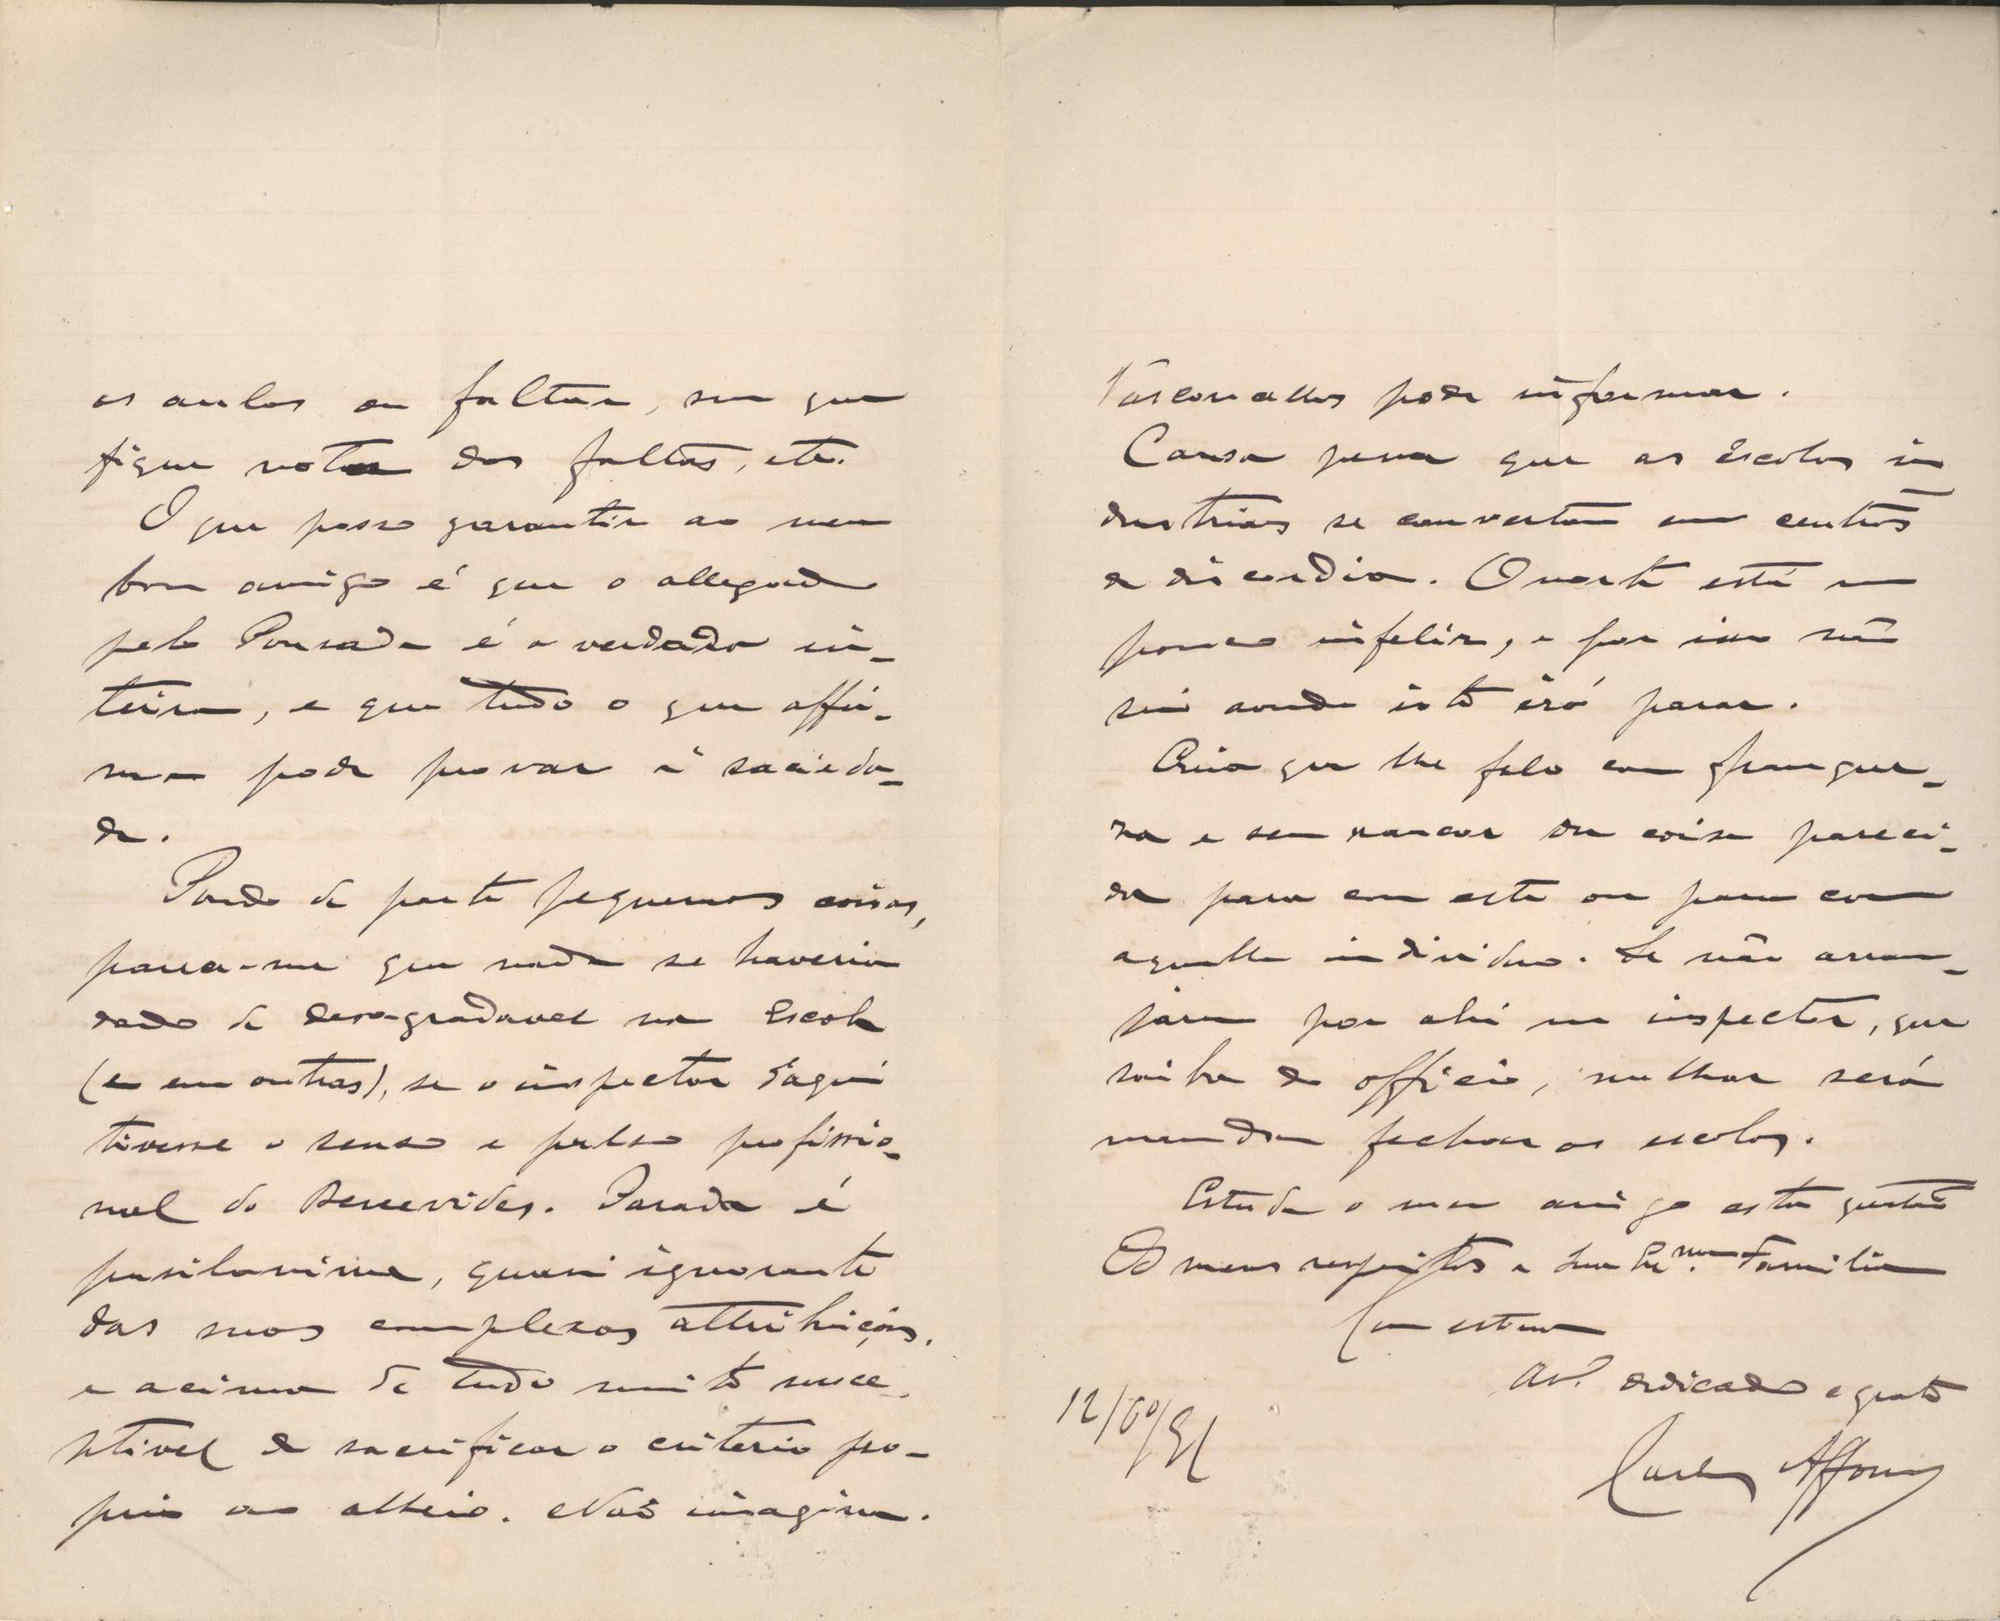 as aulas ou faltar, sem que
fique nota das faltas, etc.
O que posso garantir ao meu
bom amigo é que o allegado
pelo Pousada é a verdade in-
teira, e que tudo o que affir-
ma pode provar á sacieda-
de.
Pondo de parte pequenas coisas,
parece-me que nada se haveria
dado de desagradavel na Escola
(e em outras), se o inspector d'aqui
tivesse o senso e pulso profissio-
nal do Benevides. Parada é
pusilanime, quasi ignorante
das suas complexas attribuições,
e acima de tudo muito susce-
ptivel de sacrificar o criterio pro-
prio ao alheio. Não imagina.
Vasconcellos pode informar.
Causa pena que as Escolas in
dustriaes se convertam em centros
de discordia. O norte está um
pouco infeliz, e por isso não
sei aonde isto irá parar.
Creia que lhe falo com franque-
za e sem rancor ou coisa pareci-
da para com este ou para com
aquelle individuo. Se não arran-
jam por ahi um inspector, que
saiba do officio, melhor será
mandar fechar as escolas.
Estude o meu amigo esta questão
Os meus respeitos a Sua Ex.ma Familia
Com estima
am.º dedicado e grato
Carlos Affonso